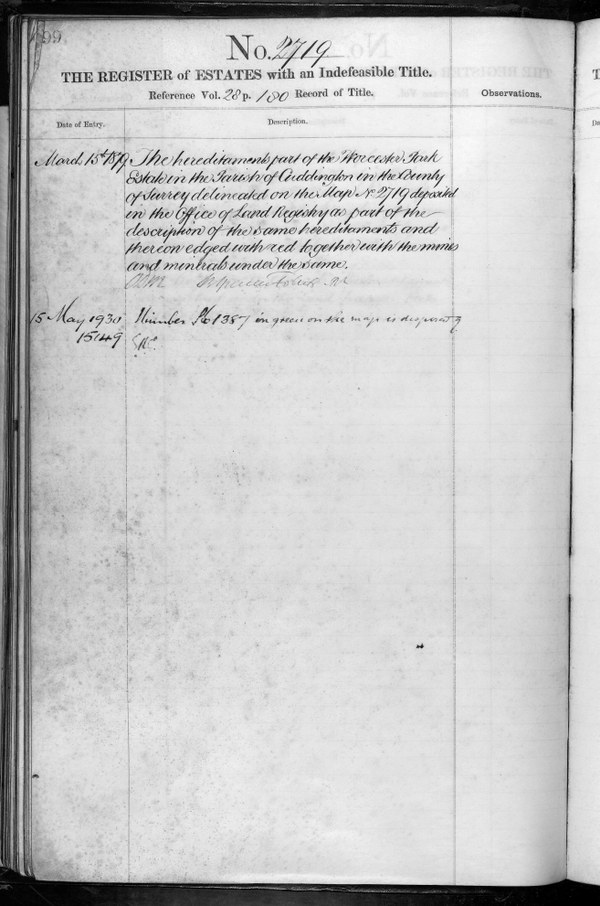 99
No. 2719
THE REGISTER of ESTATES with an Indefeasible Title.
Reference Vol. 28 p. 180 Record of Title.
Observations.
Date of Entry.
Description.
March 15th 1879 The hereditaments part of the Worcester Park
Estate in the Parish of Cuddington in the County
of Surrey delineated on the Map No 2719 deposited
in the Office of Land Registry as part of the
description of the same hereditaments and
thereon edged with red together with the mines
and minerals under the same.
15 May 1930 Number P61387 in green on the map is disposed of
15149